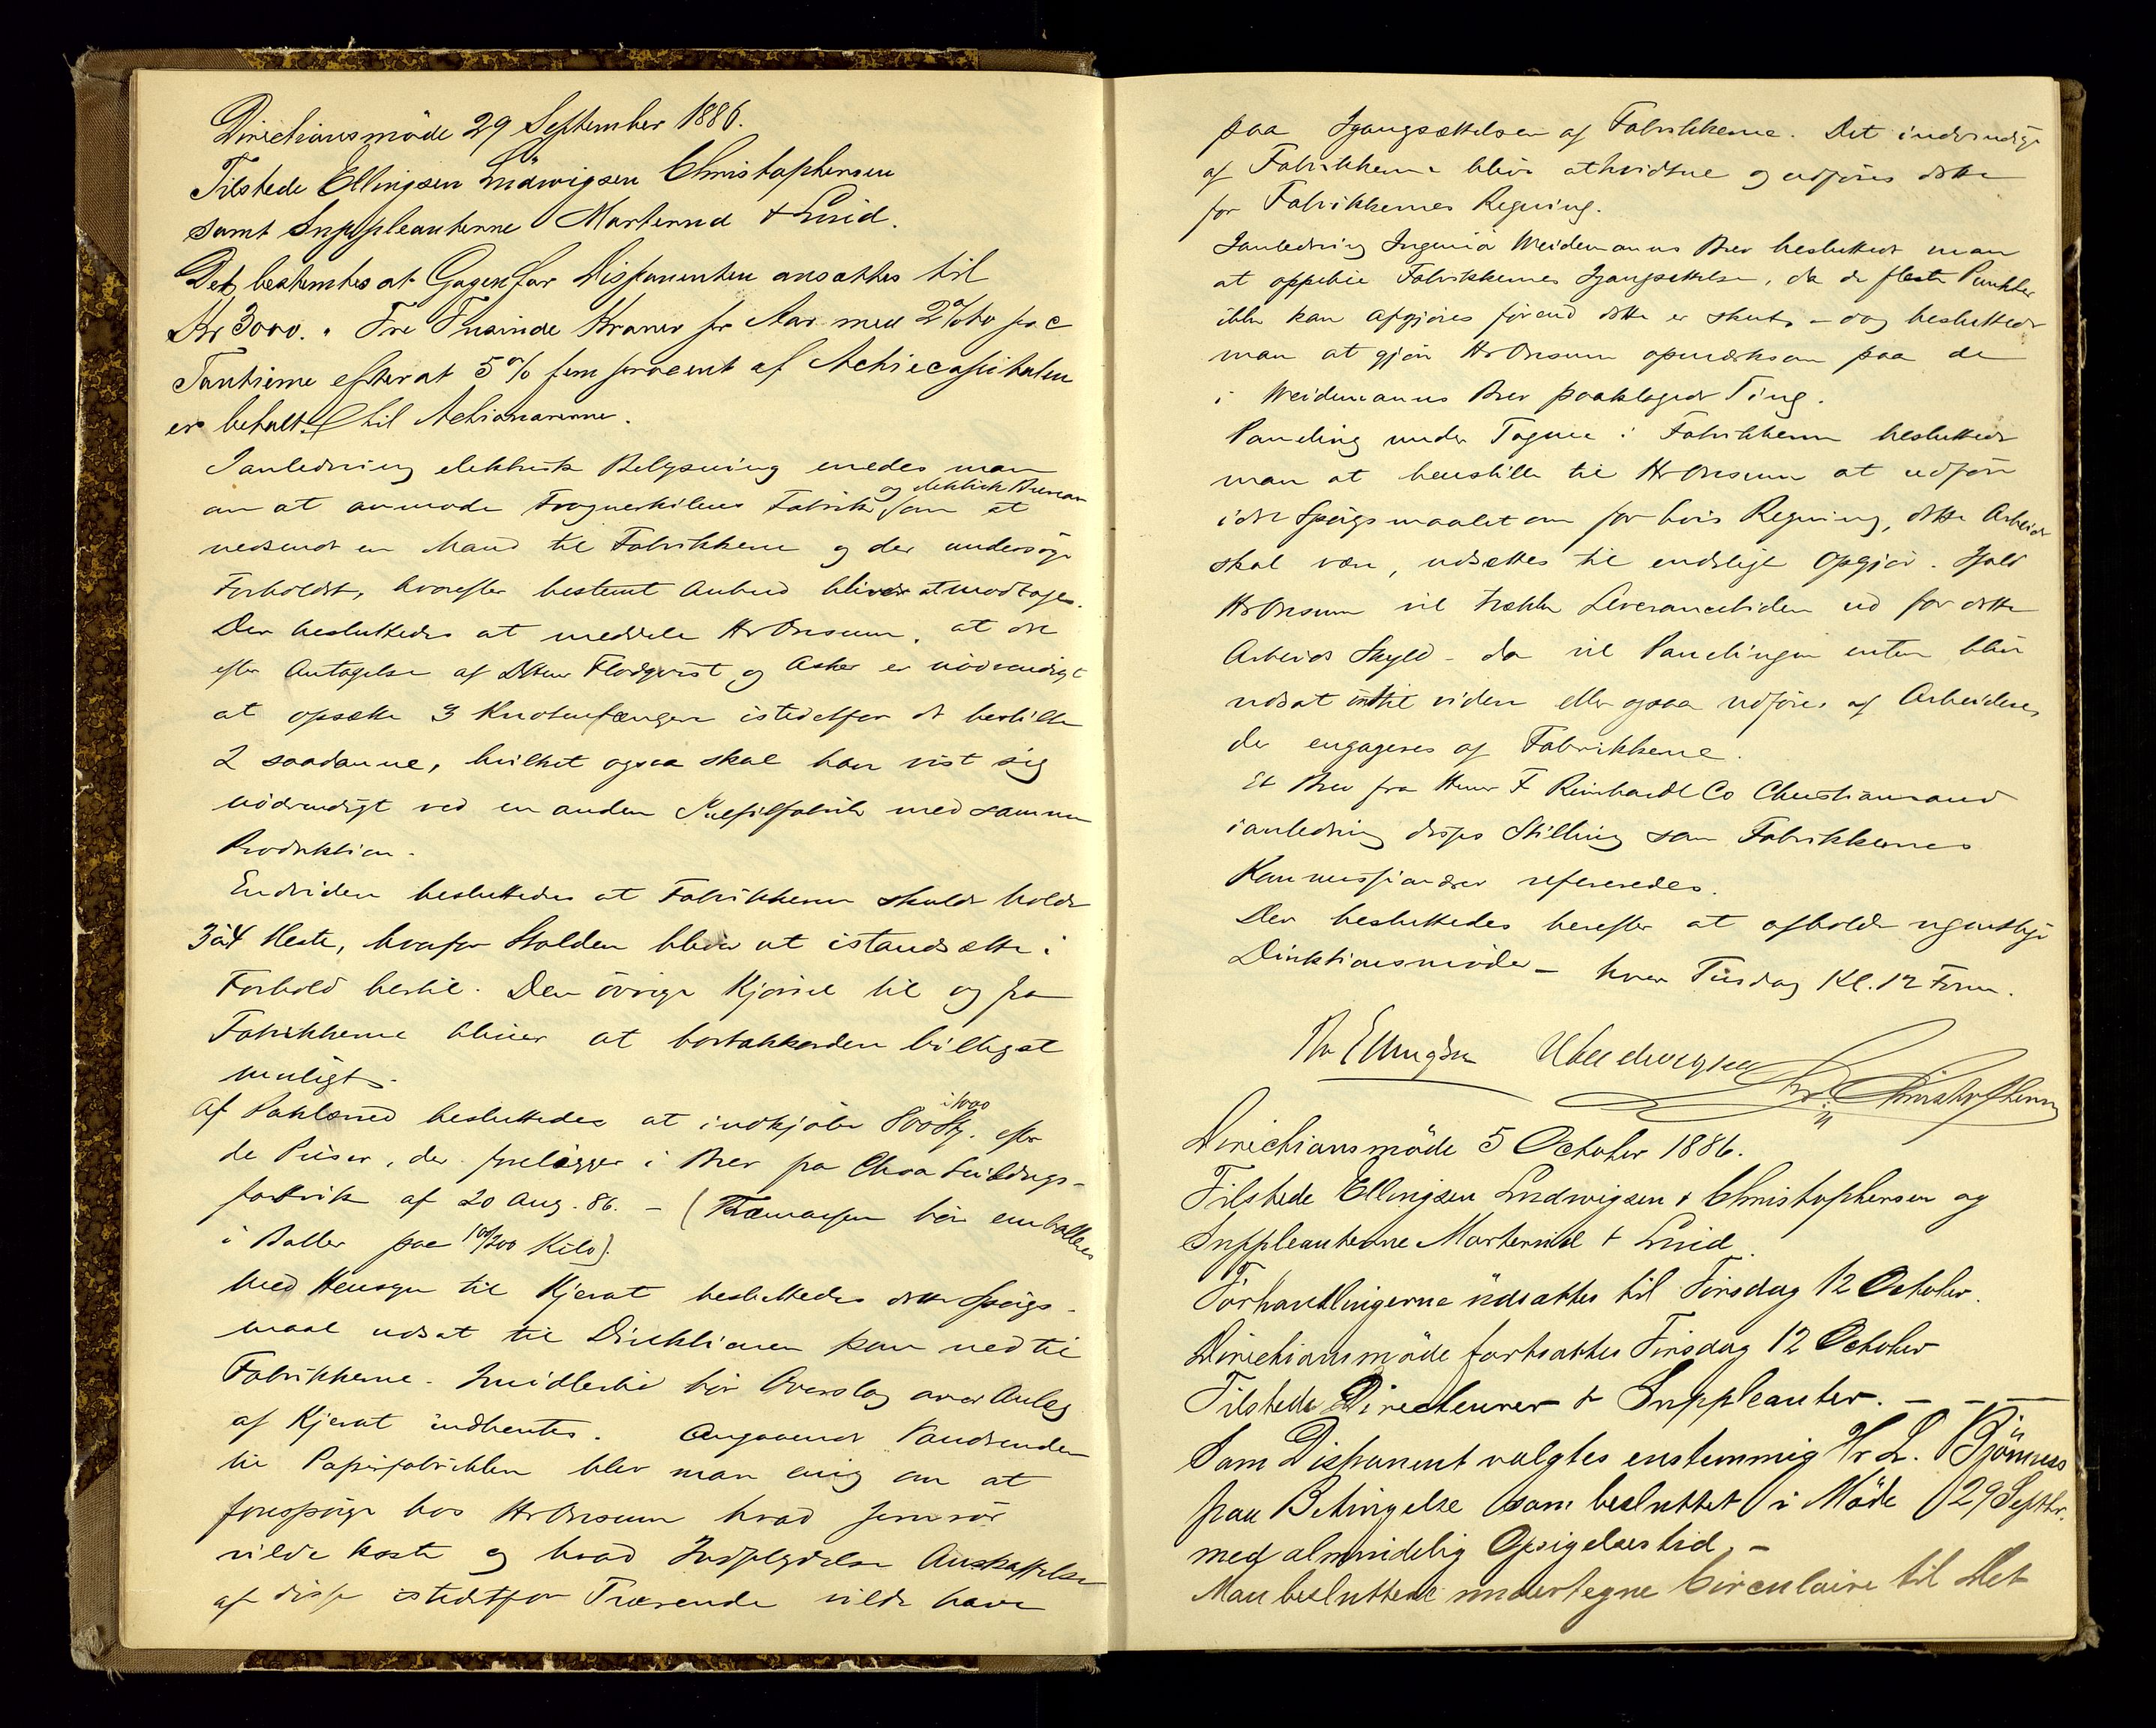 Directionsmöde 29 September 1886.
Tilstede Ellingsen Ludwigsen Christophersen
samt Suppleanterne Marternd & Lund.
Det bestemtes at Gagen for Disponenten ansættes til
Kr 3000. " Tre Tusinde Kroner pr Aar med 2% to pro c
Tantieme efterat 5% fem procent af Actiecapitalen
er betalt til Actionærerne.
Ianledning elektrisk Belysning enedes man
og elektrisk Bureau
om at anmode Frognerkilens Fabrik om at
nedsende en Mand til Fabrikkerne og der undersøge
Forholdet, hvorefter bestemt Anbud bliver at modtage.
Der besluttedes at meddele Hr Onsum, at det
efter Antagelse af DHerr Flodqvist og Asker er nödvendigt
at opsætte 3 Knotenfængere istedetfor de bestilte
2 saadanne, hvilket ogsaa skal have vist sig
nödvendigt ved en anden Sulfitfabrik med samme
Produktion.
Endvidere besluttedes at Fabrikkerne skulde holde
3 à 4 Heste, hvorfor Stalden bliver at istandsætte i
Forhold hertil. Den övrige Kjørsel til og fra
Fabrikkerne bliver at bortakkordere billigst
muligt.
i 1000
Af Paklærred besluttedes at indkjøbe 800 Kg. efter
de Priser, der foreligger i Brev fra Christiania Seildugs-
fabrik af 20 Aug. 86. – ( bör emballeres
i Baller paa 100/200 Kilo).
Med Hensyn til Kjerat besluttedes dette Spörgs-
maal udsat til Direktionen kom ned til
Fabrikkerne. Imidlertid bör Overslag over Anlæg
af Kjerat indhentes. Angaaende Vandrenden
til Papirfabrikken blev man enig om at
forespörge hos Hr Onsum hvad Jernrör
vilde koste og hvad Indflydelse Anskaffelsen
af disse istedetfor Trærende vilde have
paa Igangsættelsen af Fabrikkerne. Det indvendige
af Fabrikkerne bliver at hvidtne og udføres dette
for Fabrikkernes Regning.
Ianledning Ingeniør Weidemanns Brev besluttede man
at oppebie Fabrikkernes Igangsættelse, da de fleste Punkter
ikke kan afgjøres førend dette er skeet – dog besluttede
man at gjøre Hr Onsum opmærksom paa de
i Weidemanns Brev paaklagede Ting.
Paneling under Tagene i Fabrikkerne besluttede
man at henstille til Hr Onsum at udføre
idet Spörgsmaalet om for hvis Regning, dette Arbeide
skal være, udsættes til endelige Opgjør. Ifald
Hr Onsum vil trække Leverancetiden ud for dette
Arbeids Skyld – da vil Panelingen enten blive
udsat indtil videre eller ogsaa udføres af Arbeidere,
der engageres af Fabrikkerne.
Et Brev fra Herr F Reinhardt Co Christianssand
ianledning disses Stilling som Fabrikkernes
Kommissionærer refereredes.
Der besluttedes herefter at afholde ugentlige
Direktionsmöder – hver Tirsdag Kl. 12 Form.
Ellingsen Ludwigsen Christophersen
Directionsmöde 5 October 1886.
Tilstede Ellingsen Ludwigsen & Christophersen og
Suppleanterne Marternd & Lund.
Forhandlingerne udsattes til Tirsdag 12 October.
Directionsmöde fortsattes Tirsdag 12 October
Tilstede Directeurer & Suppleanter. – – –
Som Disponent valgtes enstemmig Hr L. Björness
paa Betingelse som besluttet i Möde 29 Septbr.
med almindelig Opsigelsestid. –
Man besluttede undertegne Circulaire til Det